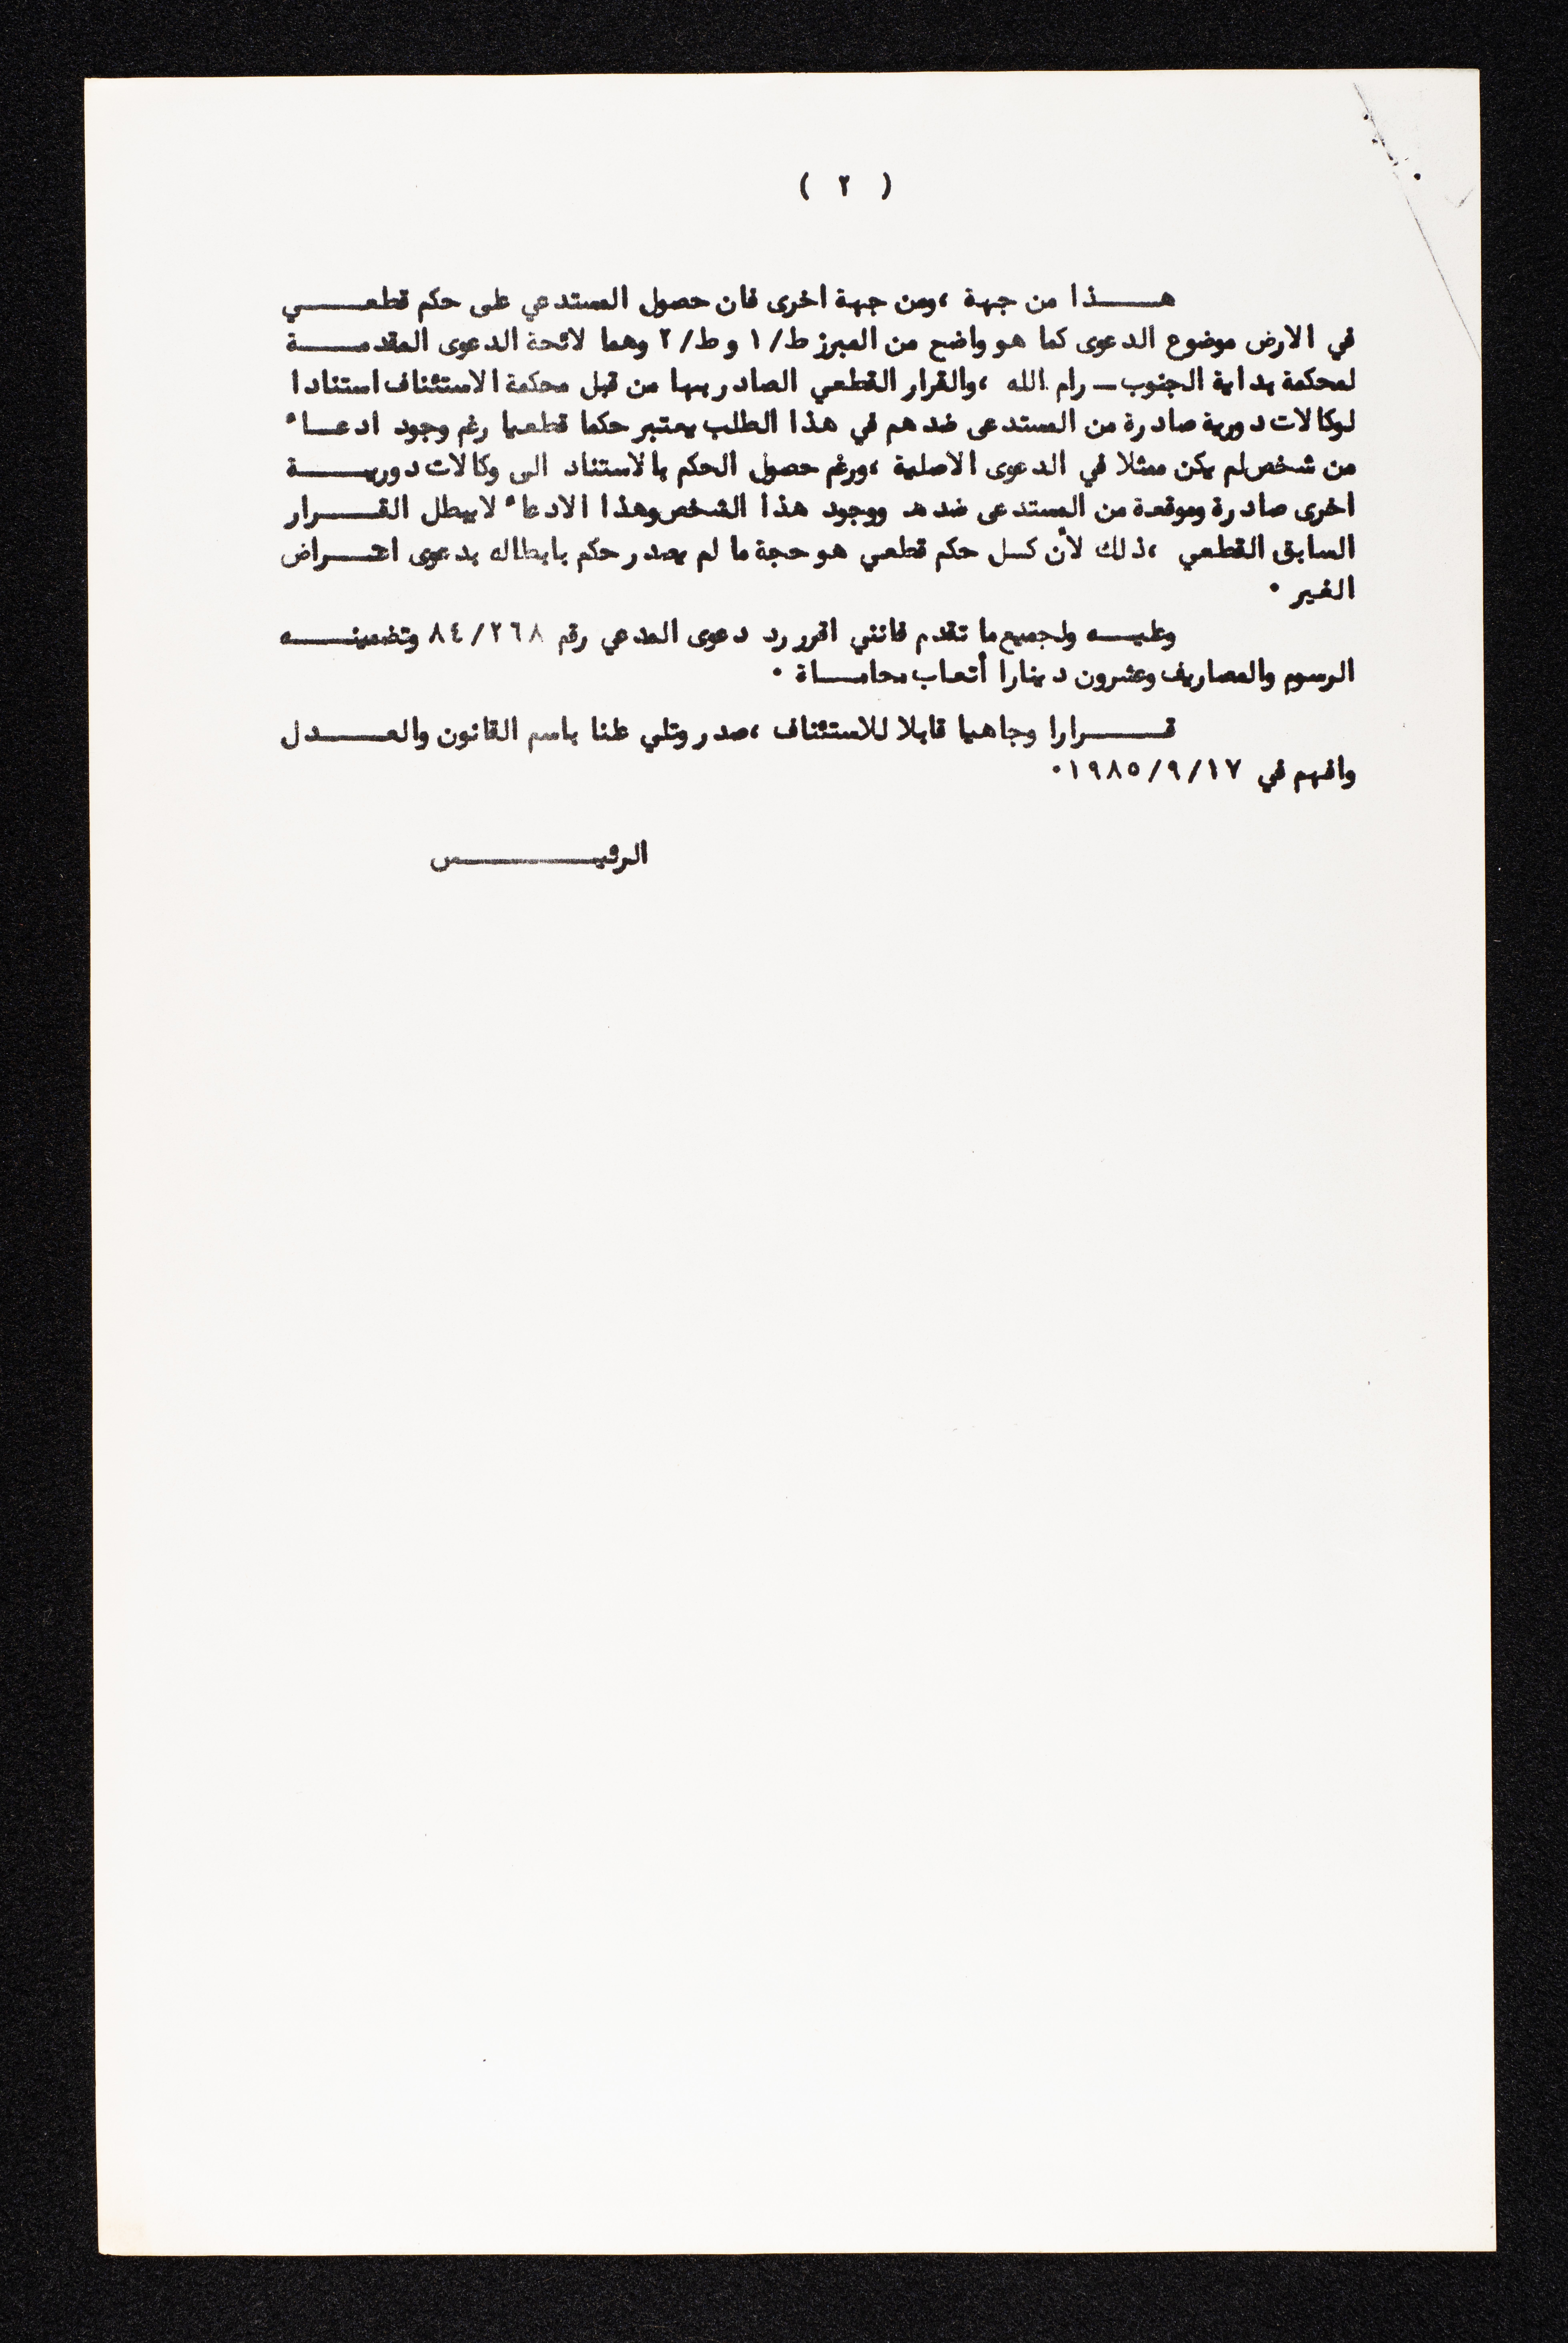 ( ٢ )
هـــــذا من جهة ،ومن جهة اخرى فان حصول المستدعي على حكم قطعـــــي
في الارض موضوع الدعوى كما هو واضح من المبرز ط/١ و ط/٢ وهما لائحة الدعوى المقدمـــــة
لمحكمة بداية الجنوب ــ رام الله ،والقرار القطعي الصادر بها من قبل محكمة الاستئناف استنادا
لوكالات دورية صادرة من المستدعى ضدهم في هذا الطلب يعتبر حكما قطعيا رغم وجود ادعــاء
من شخص لم يكن ممثلا في الدعوى الاصلية ،ورغم حصول الحكم بالاستناد الى وكالات دوريـــــة
اخرى صادرة وموقعة من المستدعى ضده ووجود هذا الشخص وهذا الادعاء لايبطل القـــــرار
السابق القطعي ،ذلك لأن كسل حكم قطعي هو حجة ما لم يصدر حكم بابطاله بدعوى اعتـــراض
الغير ٠
وعليـــه ولجميع ما تقدم فانني اقرر رد دعوى المدعي رقم ٨٤/٢٦٨ وتضمينـــــه
الرسوم والمصاريف وعشرون دينارا أتعاب محامـــاة ٠
قـــــرارا وجاهيا قابلا للاستئناف ،صدر وتلي علنا باسم القانون والعـــــدل
وافهم في ١٩٨٥/٩/١٧٠
الرئيـــــــــس